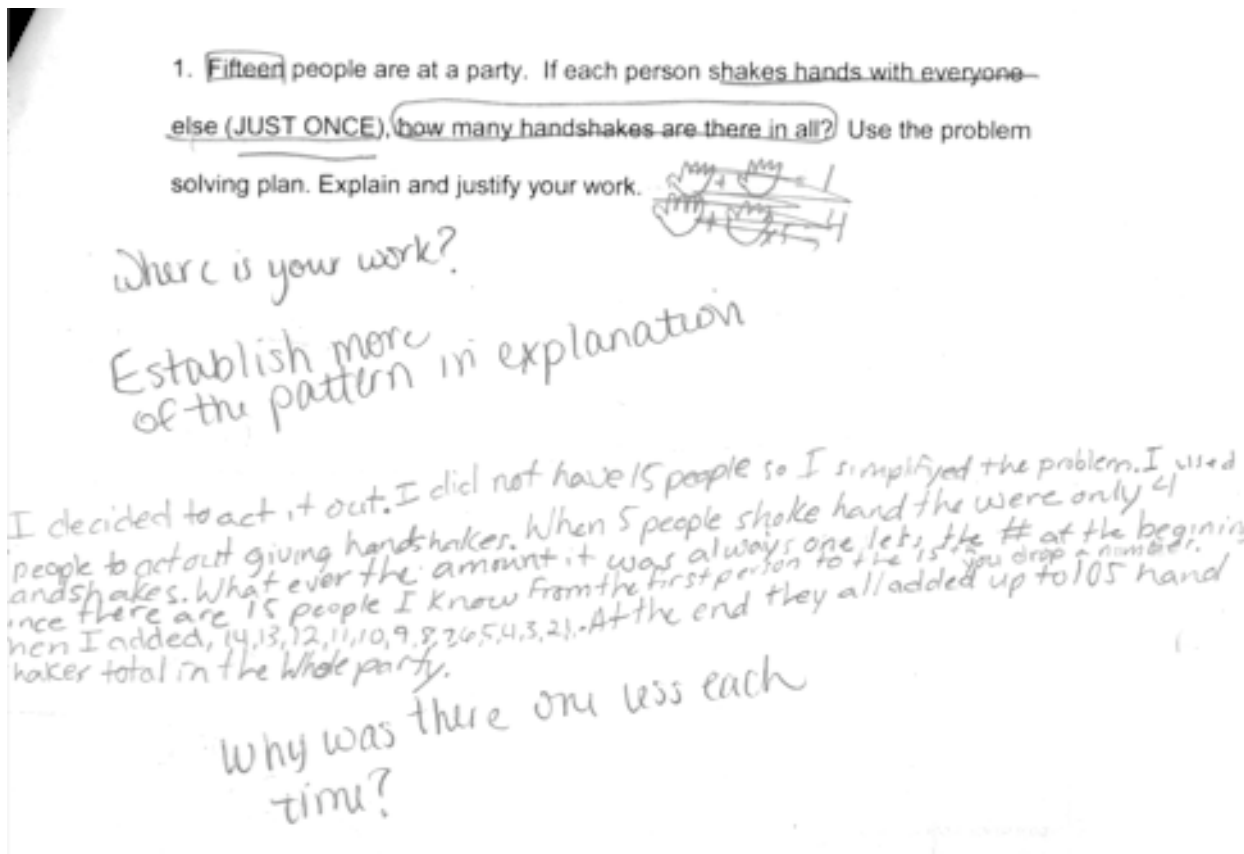 1. Fifteen people are at a party. If each person shakes hands with everyone
else (JUST ONCE), how many handshakes are there in all? Use the problem
solving plan. Explain and justify your work.
+ = 1
+ 4
Where is your work?
Establish more
of the pattern in explanation
I decided to act it out. I did not have 15 people so I simplifyed the problem. I used
people to act out giving handshakes. When 5 people shoke hand the were only 4
andshakes. What ever the amount it was always one lets the # at the begining
ince there are 15 people I know from the first person to the 15 you drop a number.
hen I added, 14,13,12,11,10,9,8,7,6,5,4,3,2,1. At the end they all added up to 105 hand
hakes total in the whole party.
Why was there one less each
time?